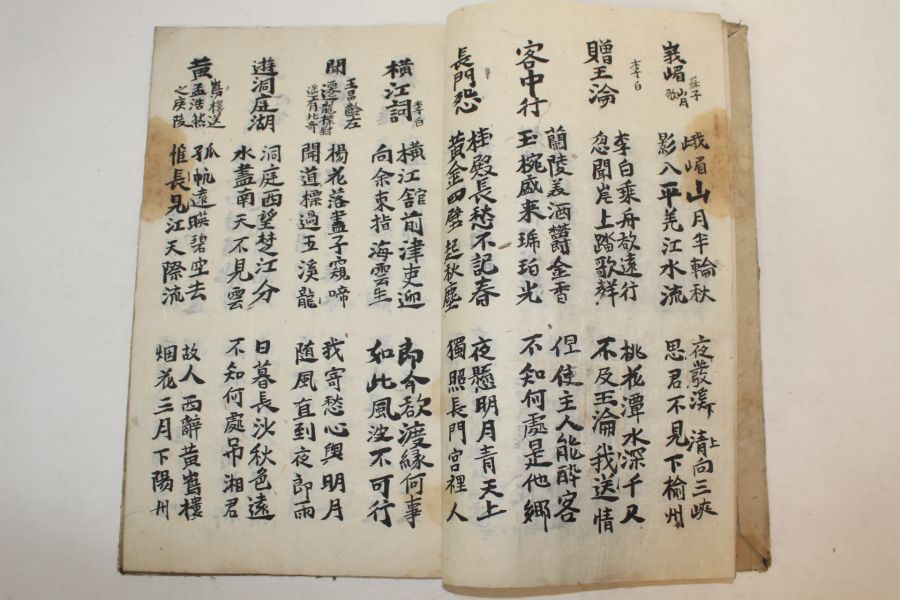 峩嵋山月歌
蘇子
峨嵋山月半輪秋
影入平羌江水流
夜發溪下清上向三峽
思君不見下楡州
贈王淪
李白
李白乘舟欲遠行
忽聞岸上踏歌
桃花潭水深千又
不及王淪我送情
客中行
蘭陵美酒欝金香
玉椀盛来琥珀光
但使主人能醉客
不知何處是他鄉
長門怨
桂殿長愁不記春
黃金四壁起秋塵
夜懸明月青天上
獨照長門宮裡人
橫江詞
李白
橫江舘前津吏迎
向余東指海雲生
郎今欲渡緣何事
如此風波不可行
聞
王昌齡左
遷龍標尉
遙有此寄
楊花落盡子窺啼
聞道標過五溪龍
我寄愁心與明月
随風直到夜郎雨
遊洞庭湖
洞庭西望楚江分
水盡南天不見雲
日暮長沙秋色遠
不知何處吊湘君
黃
鶴樓送
孟浩然
之廣陵
孤帆遠暎碧空去
惟長見江天際流
故人西辭黃鶴樓
烟花三月下陽州